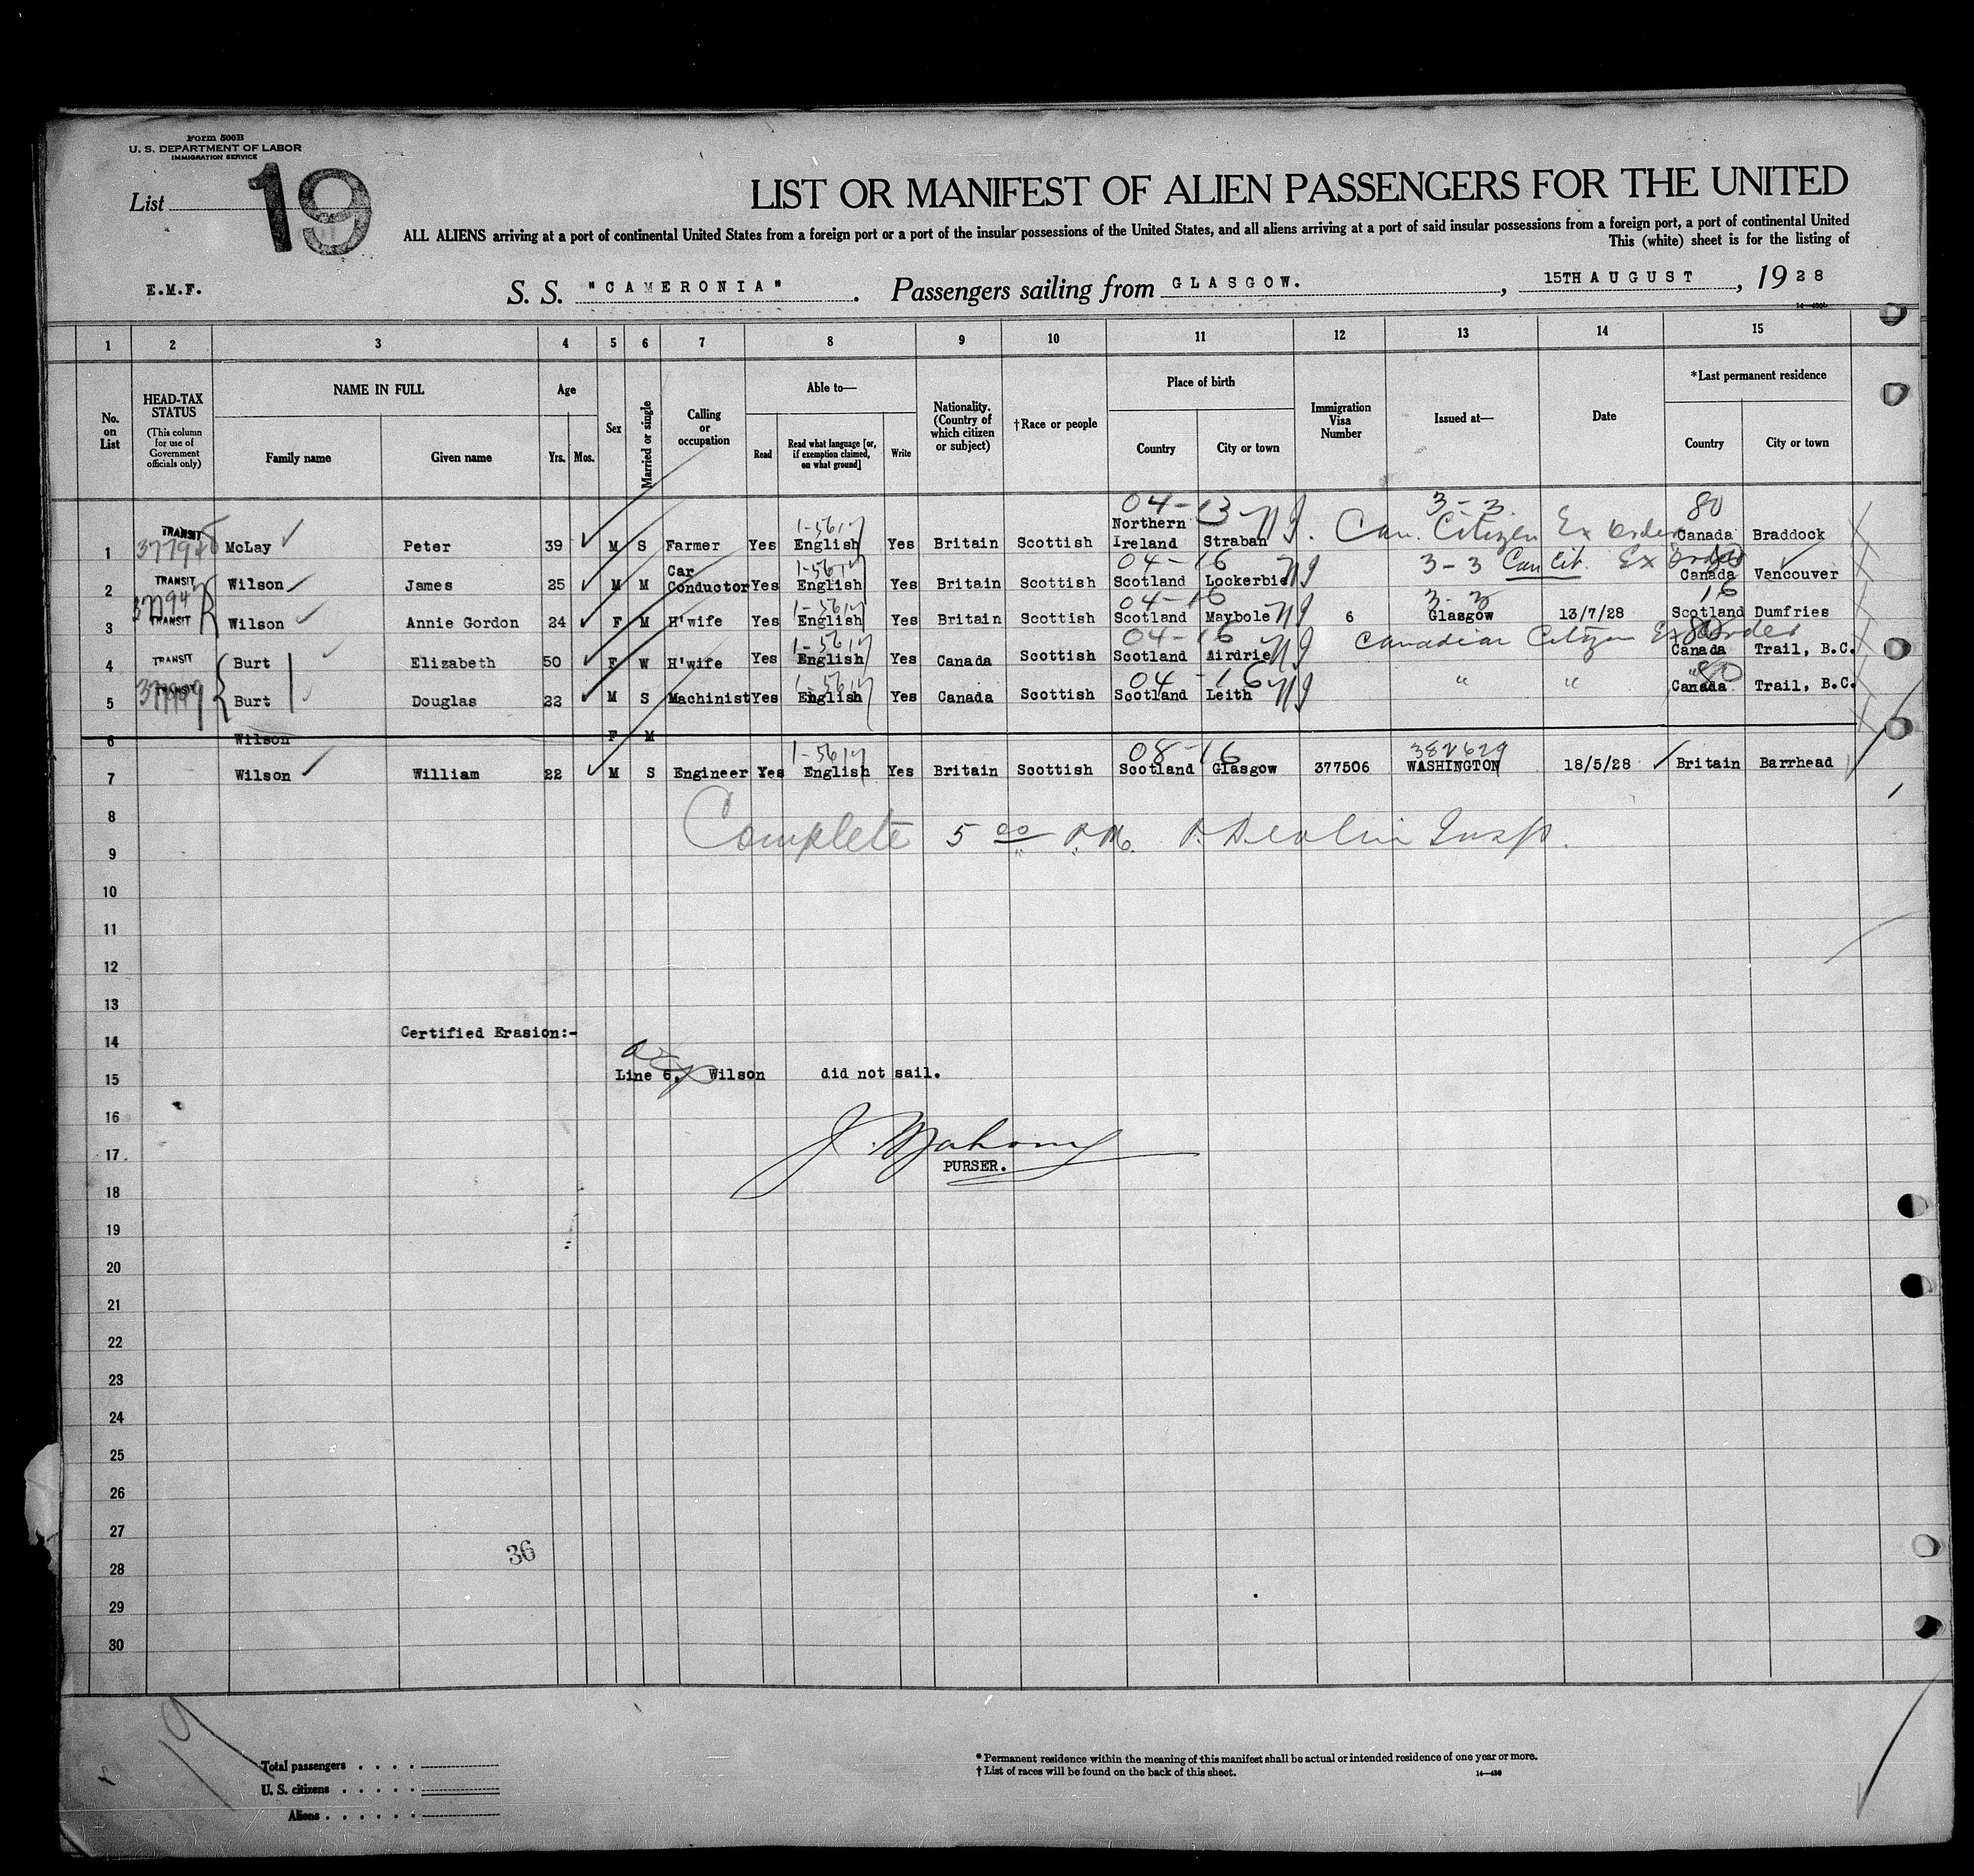 Form 500B
U. S. DEPARTMENT OF LABOR
IMMIGRATION SERVICE
List 19
LIST OR MANIFEST OF ALIEN PASSENGERS FOR THE UNITED
ALL ALIENS arriving at a port of continental United States from a foreign port or a port of the insular possessions of the United States, and all aliens arriving at a port of said insular possessions from a foreign port, a port of continental United
This (white) sheet is for the listing of
E.M.F. S. S. "CAMERONIA". Passengers sailing from GLASGOW., 15TH AUGUST, 1928
1 2 3 4 5 6 7 8 9 10 11 12 13 14 15
No. on List
HEAD-TAX STATUS (This column for use of Government officials only)
NAME IN FULL
Family name Given name
Age
Yrs. Mos.
Sex
Married or single
Calling or occupation
Able to—
Read Read what language [or, if exemption claimed, on what ground] Write
Nationality. (Country of which citizen or subject)
†Race or people
Place of birth
Country City or town
Immigration Visa Number
Issued at—
Date
*Last permanent residence
Country City or town
04-13 3-3 80
1 TRANSIT McLay Peter 39 M S Farmer Yes English Yes Britain Scottish Northern Ireland Straban Can. Citizen Ex Order Canada Braddock
04-16
2 TRANSIT Wilson James 25 M M Car Conductor Yes English Yes Britain Scottish Scotland Lockerbie 3-3 Can Cit. Ex Order Canada Vancouver
04-16 3-3 16
3 TRANSIT Wilson Annie Gordon 24 F M H'wife Yes English Yes Britain Scottish Scotland Maybole 6 Glasgow 13/7/28 Scotland Dumfries
04-16 Canadian Citizen Ex Order 80
4 TRANSIT Burt Elizabeth 50 F W H'wife Yes English Yes Canada Scottish Scotland Airdrie Canada Trail, B.C.
04-16 " " " 80
5 TRANSIT Burt Douglas 22 M S Machinist Yes English Yes Canada Scottish Scotland Leith Canada Trail, B.C.
6 Wilson F M
08-16 382629
7 Wilson William 22 M S Engineer Yes English Yes Britain Scottish Scotland Glasgow 377506 WASHINGTON 18/5/28 Britain Barrhead
8
Complete 5 00 P.M. P. Devlin Insp.
9
10
11
12
13
Certified Erasion:-
14
15 Line 6, Wilson did not sail.
16
J. Mahony
17
PURSER.
18
19
20
21
22
23
24
25
26
27
36
28
29
30
19
Total passengers . . . .
U. S. citizens . . . . .
Aliens . . . . . .
* Permanent residence within the meaning of this manifest shall be actual or intended residence of one year or more.
† List of races will be found on the back of this sheet.